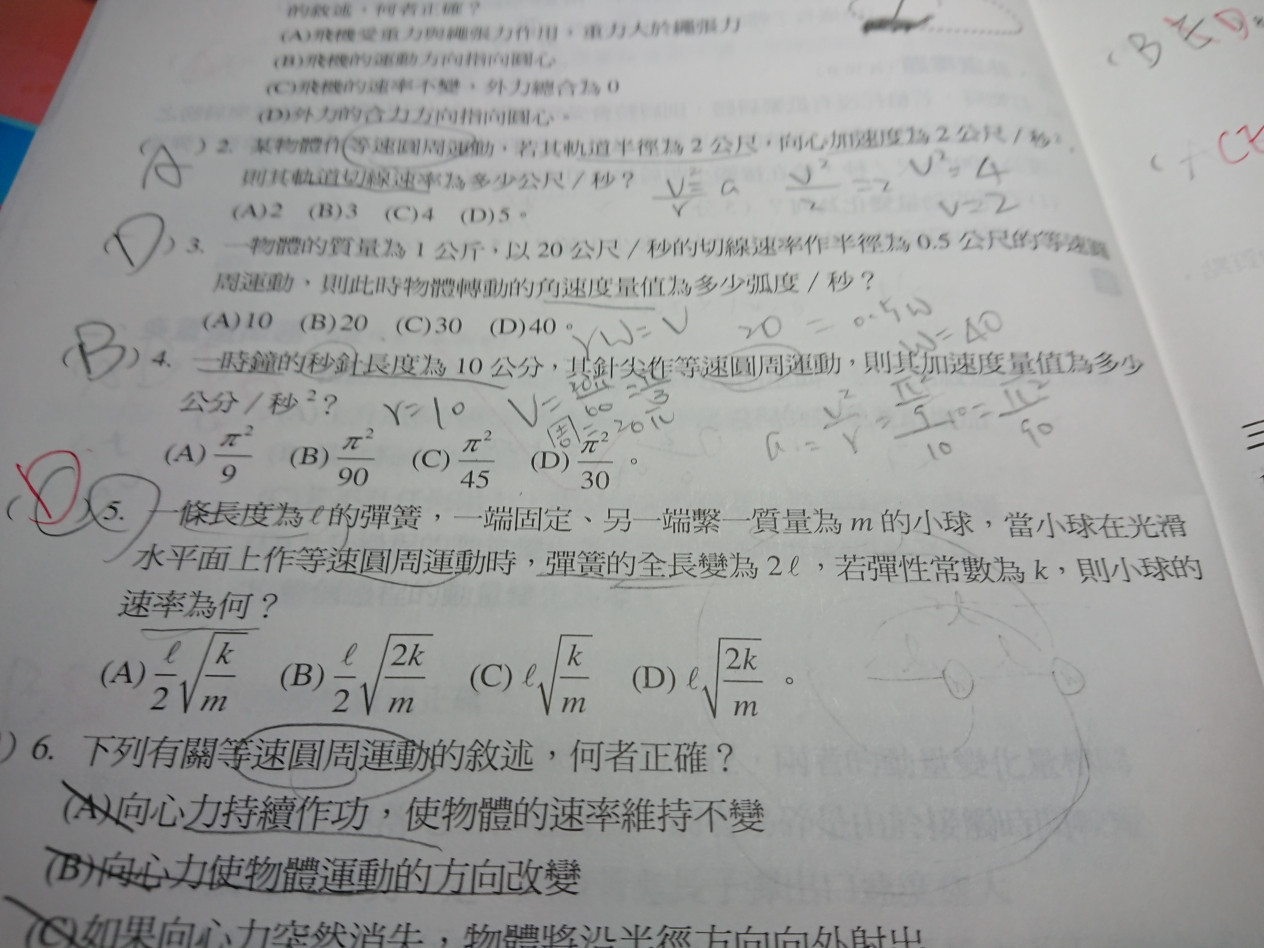 的敘述，何者正確？
(A)飛機受重力與繩張力作用，重力大於繩張力
(B)飛機的運動方向指向圓心
(C)飛機的速率不變，外力總合為 0
(D)外力的合力方向指向圓心。
(A) 2. 某物體作等速圓周運動，若其軌道半徑為 2 公尺，向心加速度為 2 公尺／秒²，
則其軌道切線速率為多少公尺／秒？ V²/r = a V²/2 = 2 V² = 4
(A)2 (B)3 (C)4 (D)5。 V=2
(D) 3. 一物體的質量為 1 公斤，以 20 公尺／秒的切線速率作半徑為 0.5 公尺的等速圓
周運動，則此時物體轉動的角速度量值為多少弧度／秒？
(A)10 (B)20 (C)30 (D)40。 rW=V 20 = 0.5W W=40
(B) 4. 一時鐘的秒針長度為 10 公分，其針尖作等速圓周運動，則其加速度量值為多少
公分／秒²？ r=10 V=20π/60=π/3 周=20π a=V²/r=π²/9/10=π²/90
(A) π²/9 (B) π²/90 (C) π²/45 (D) π²/30 。
(D) 5. 一條長度為 ℓ 的彈簧，一端固定、另一端繫一質量為 m 的小球，當小球在光滑
水平面上作等速圓周運動時，彈簧的全長變為 2ℓ，若彈性常數為 k，則小球的
速率為何？
(A) ℓ/2 √(k/m) (B) ℓ/2 √(2k/m) (C) ℓ√(k/m) (D) ℓ√(2k/m) 。
) 6. 下列有關等速圓周運動的敘述，何者正確？
(A)向心力持續作功，使物體的速率維持不變
(B)向心力使物體運動的方向改變
(C)如果向心力突然消失，物體將沿半徑方向向外射出